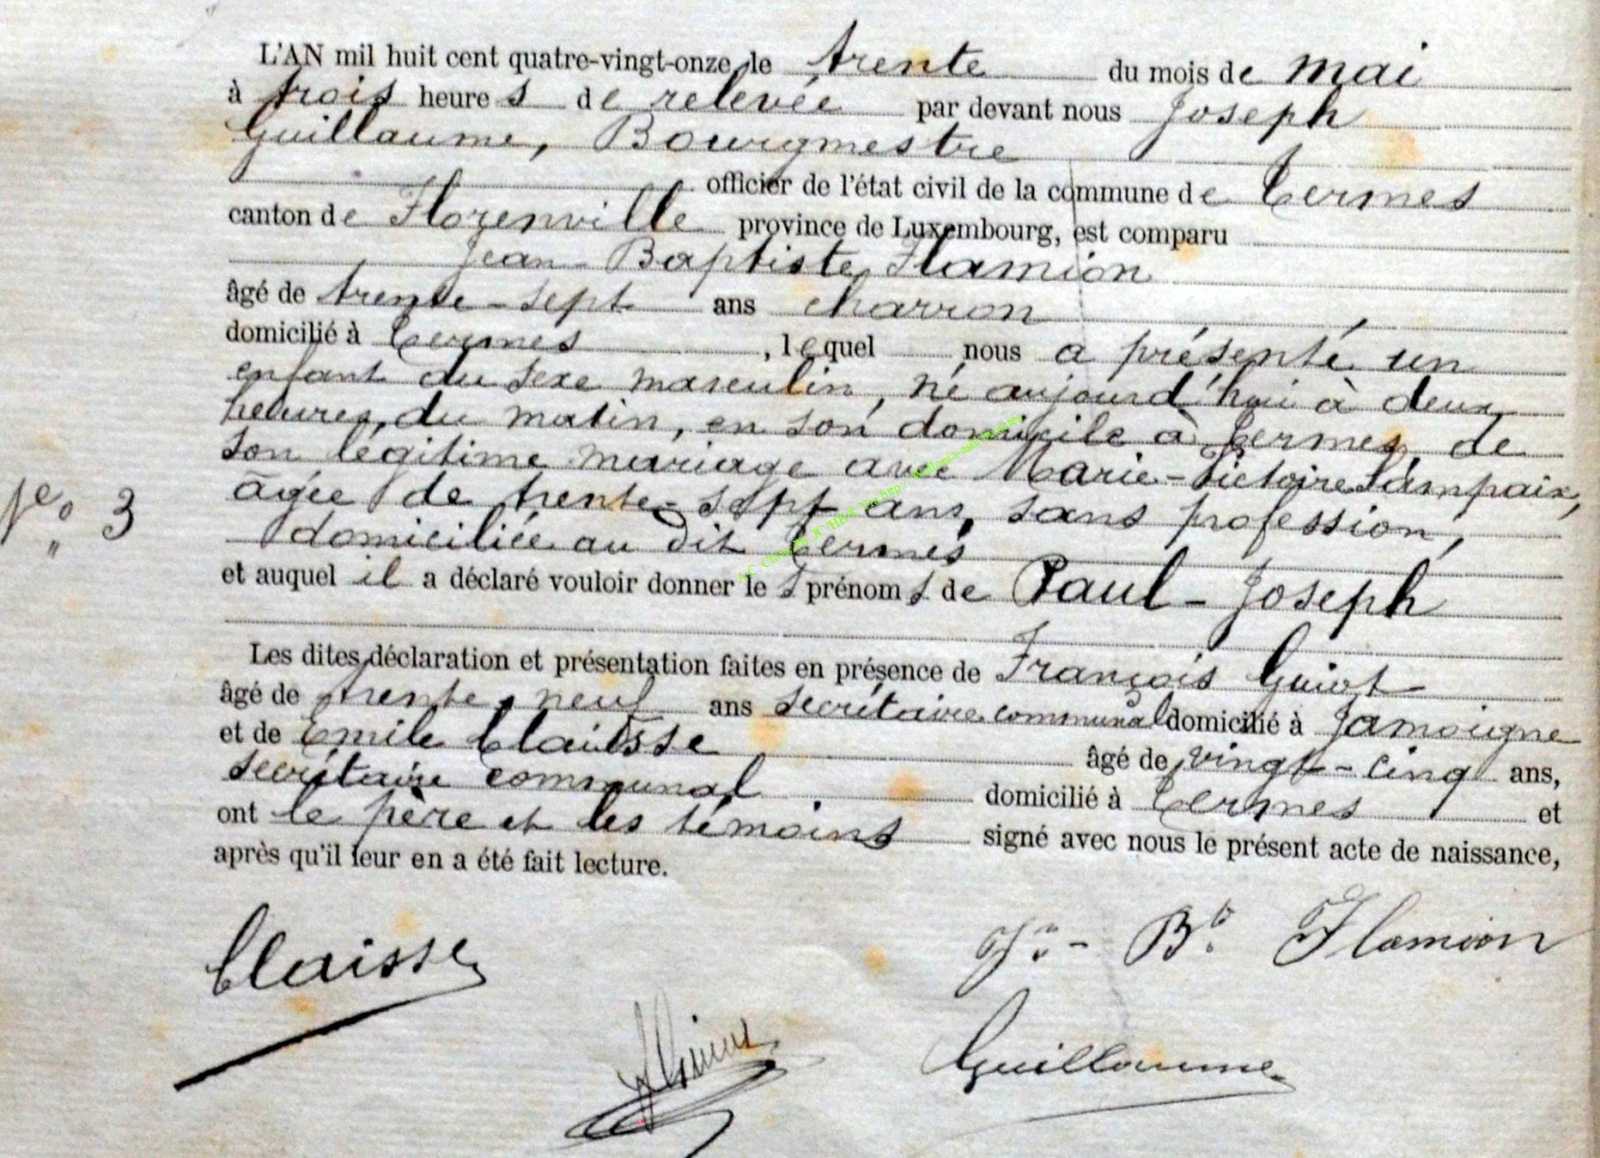 L'AN mil huit cent quatre-vingt-onze, le trente du mois de mai
à trois heures de relevée par devant nous Joseph
Guillaume, Bourgmestre
officier de l'état civil de la commune de Termes
canton de Florenville province de Luxembourg, est comparu
Jean-Baptiste Flamion
âgé de trente-sept ans charron
domicilié à Termes, lequel nous a présenté un
enfant du sexe masculin, né aujourd'hui à deux
heures, du matin, en son domicile à Termes, de
son légitime mariage avec Marie-Victoire Lampaix,
âgée de trente-sept ans, sans profession,
N° 3
domiciliée au dit Termes
et auquel il a déclaré vouloir donner les prénoms de Paul-Joseph
Les dites déclaration et présentation faites en présence de François Guiot
âgé de trente-neuf ans secrétaire communal domicilié à Jamoigne
et de Emile Claisse âgé de vingt-cinq ans,
secrétaire communal domicilié à Termes et
ont le père et les témoins signé avec nous le présent acte de naissance,
après qu'il leur en a été fait lecture.
Claisse
Jn-Bte Flamion
FGuiot
Guillaume